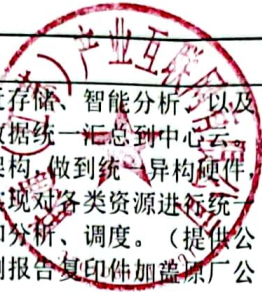 产业互联网有限公司
存储、智能分析，以及
数据统一汇总到中心云。
架构，做到统一异构硬件，
实现对各类资源进行统一
和分析、调度。（提供公
测报告复印件加盖原厂公